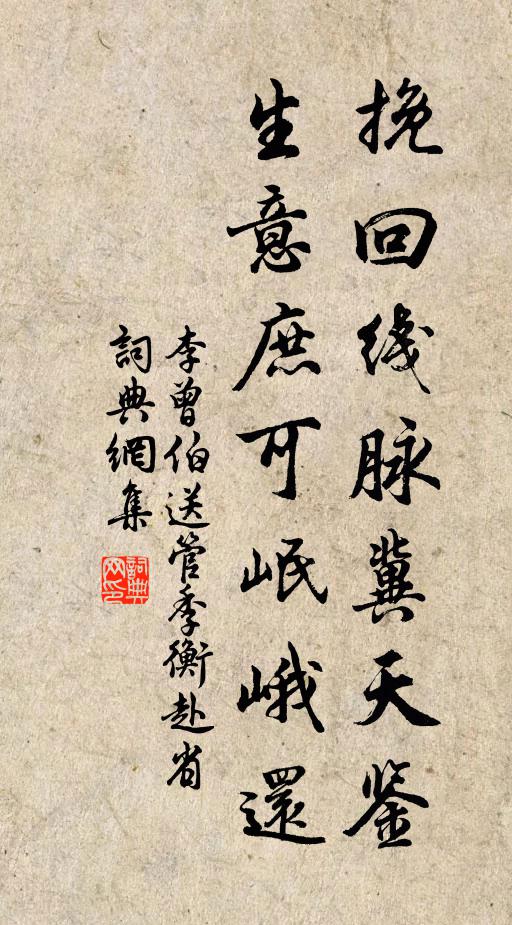 挽回线脉冀天鉴
生意庶可岷峨還
李曾伯送管季衡赴省
詞典網集
詞典網印